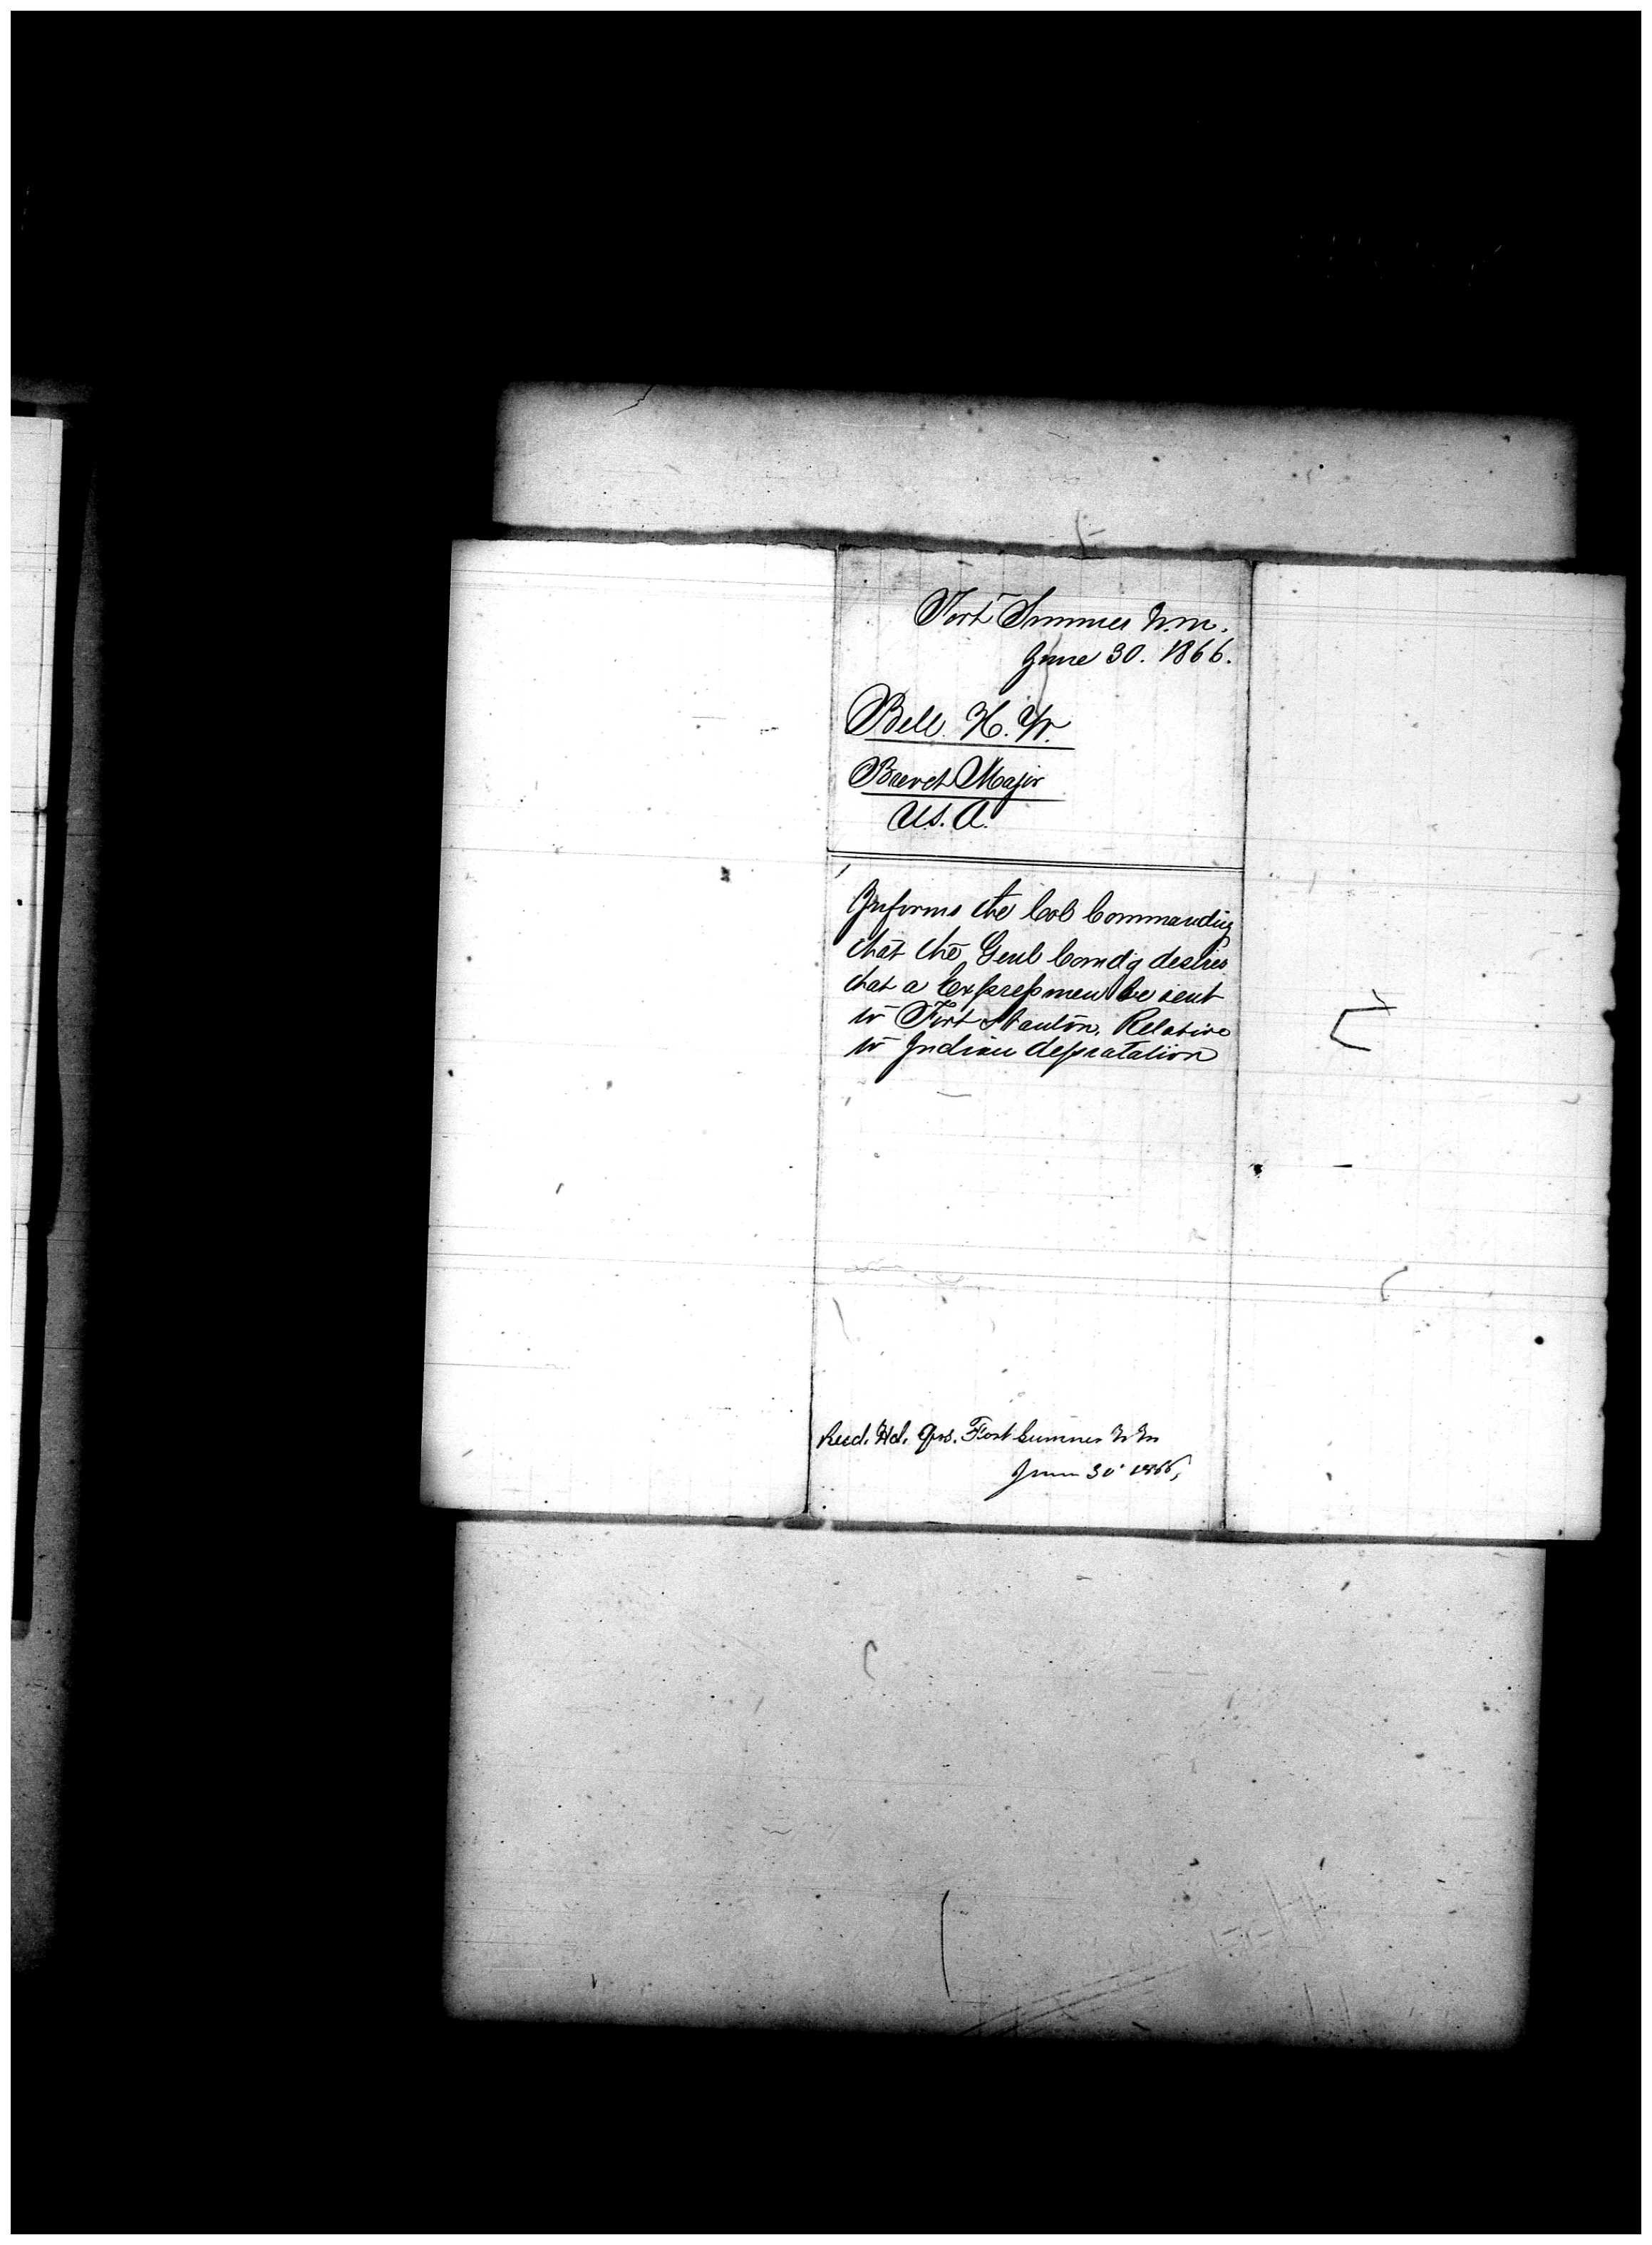 Fort Sumner N.M.
June 30. 1866.
Bell. H. W.
Brevet Major
U.S.A.
Informs the Col Commanding
that the Genl Comd'g desires
that a Expressmen be sent
to Fort Stanton. Relative
to Indian depratation
Recd. Hd. Qrs. Fort Sumner N M
June 30" 1866,